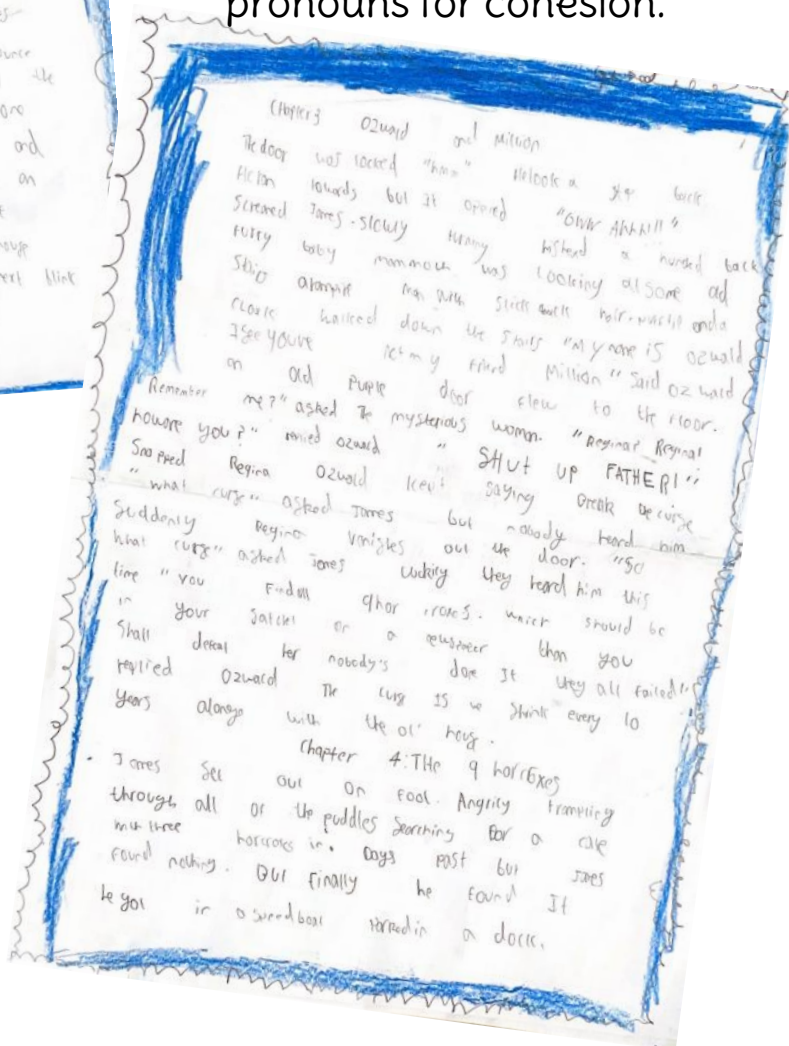 pronouns for cohesion.
the
and
an
ext blink
Chapter 3 Ozwald and Million
The door was locked "hmm" He took a step back
but It opened "OWW Ahhh!!!"
Screamed James. Slowly turning a hunded back
furry baby mammoth was looking at some
man with hair and a
walked down the stairs "My name is Ozwald
I See you've met my friend Million" Said Ozwald
an old purple door flew to the floor.
"Remember me?" asked The mysterious woman. "Regina? Regina!
how are you?" Ozwald " SHUT UP FATHER!"
Snapped Regina Ozwald kept saying break
"what curse" asked James but nobody heard him
Suddenly Regina vanishes out the door. "So
what curse" asked James luckily they heard him this
time "You Find all 9 which should be
in your Satchel or a than you
Shall defeat her nobody's done It they all failed"
replied Ozwald The curse IS we Shrink every 10
years with the ol' house.
Chapter 4: THe 9 horcExes
James Set out On Foot. Angrily trampling
through all or the puddles Searching for a
three in. Days past but James
found nothing. But finally he found It
he got in a Speedboat in a dock.